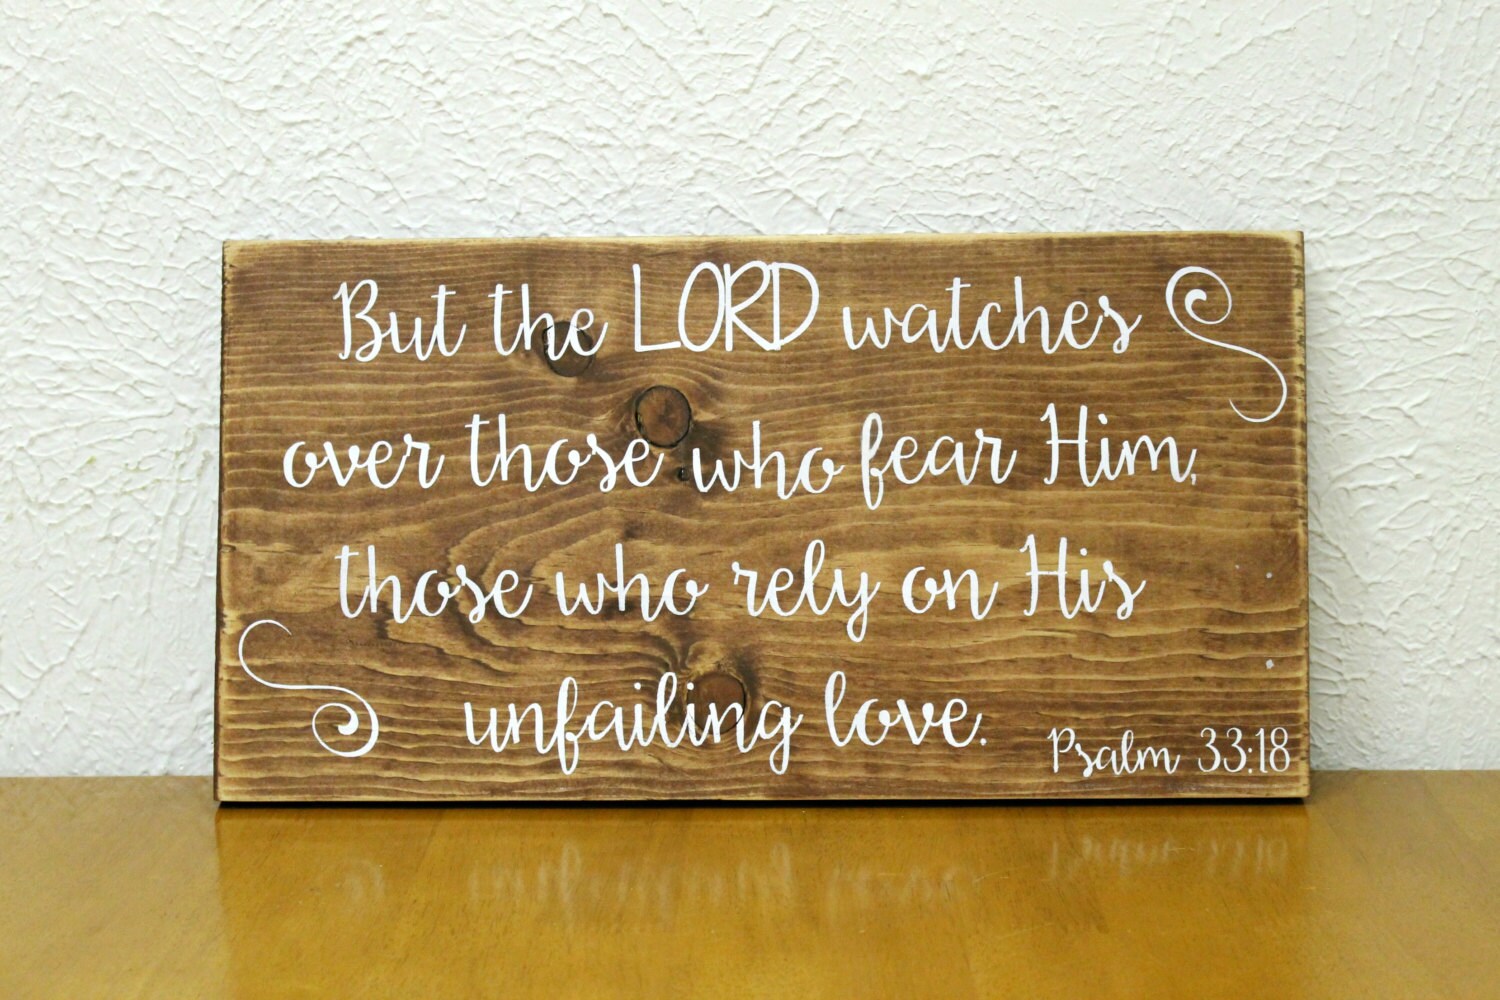 But the LORD watches
over those who fear Him,
those who rely on His
unfailing love.
Psalm 33:18